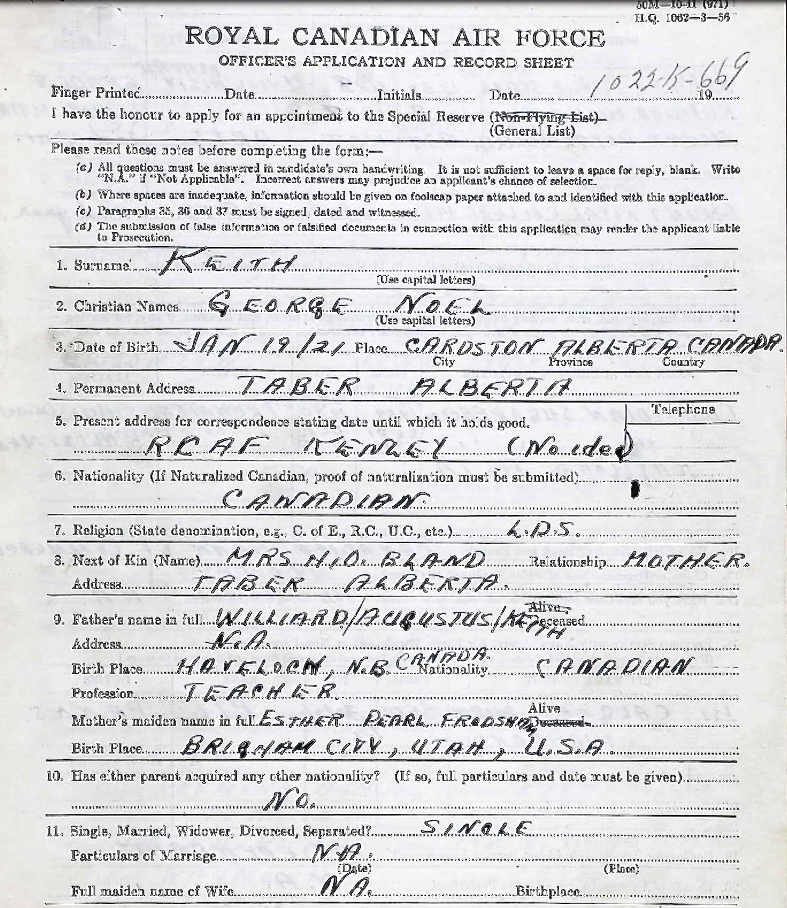 50M—10-41 (971)
H.Q. 1062—3—56
ROYAL CANADIAN AIR FORCE
OFFICER'S APPLICATION AND RECORD SHEET
1022-K-669
Finger Printed Date Initials Date 19
I have the honour to apply for an appointment to the Special Reserve (Non-Flying List)
(General List)
Please read these notes before completing the form:—
(a) All questions must be answered in candidate's own handwriting. It is not sufficient to leave a space for reply, blank. Write
"N.A." if "Not Applicable". Incorrect answers may prejudice an applicant's chance of selection.
(b) Where spaces are inadequate, information should be given on foolscap paper attached to and identified with this application.
(c) Paragraphs 35, 36 and 37 must be signed, dated and witnessed.
(d) The submission of false information or falsified documents in connection with this application may render the applicant liable
to Prosecution.
1. Surname KEITH
(Use capital letters)
2. Christian Names GEORGE NOEL
(Use capital letters)
3. Date of Birth JAN 19/21 Place CARDSTON ALBERTA CANADA.
City Province Country
4. Permanent Address TABER ALBERTA
Telephone
5. Present address for correspondence stating date until which it holds good.
RCAF KENLEY (No idea)
6. Nationality (If Naturalized Canadian, proof of naturalization must be submitted)
CANADIAN
7. Religion (State denomination, e.g., C. of E., R.C., U.C., etc.) L.D.S.
8. Next of Kin (Name) MRS H.O. BLAND Relationship MOTHER.
Address TABER ALBERTA.
Alive
9. Father's name in full WILLIARD/AUGUSTUS/KEITH Deceased
Address N.A.
Birth Place HAVELOCK, N.B CANADA. Nationality CANADIAN
Profession TEACHER
Alive
Mother's maiden name in full ESTHER PEARL FRODSHAM Deceased
Birth Place BRIGHAM CITY, UTAH, U.S.A.
10. Has either parent acquired any other nationality? (If so, full particulars and date must be given)
NO.
11. Single, Married, Widower, Divorced, Separated? SINGLE
Particulars of Marriage N.A.
(Date) (Place)
Full maiden name of Wife N.A. Birthplace